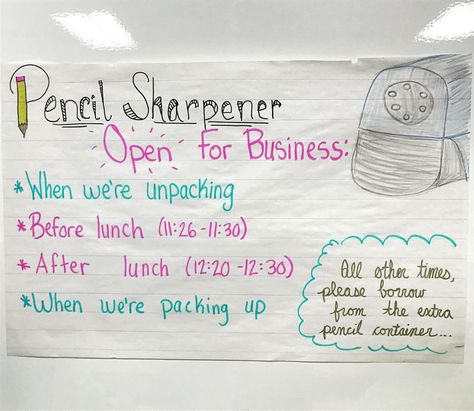 Pencil Sharpener
Open for Business:
*When we're unpacking
*Before lunch (11:26-11:30)
*After lunch (12:20-12:30)
*When we're packing up
All other times,
please borrow
from the extra
pencil container...